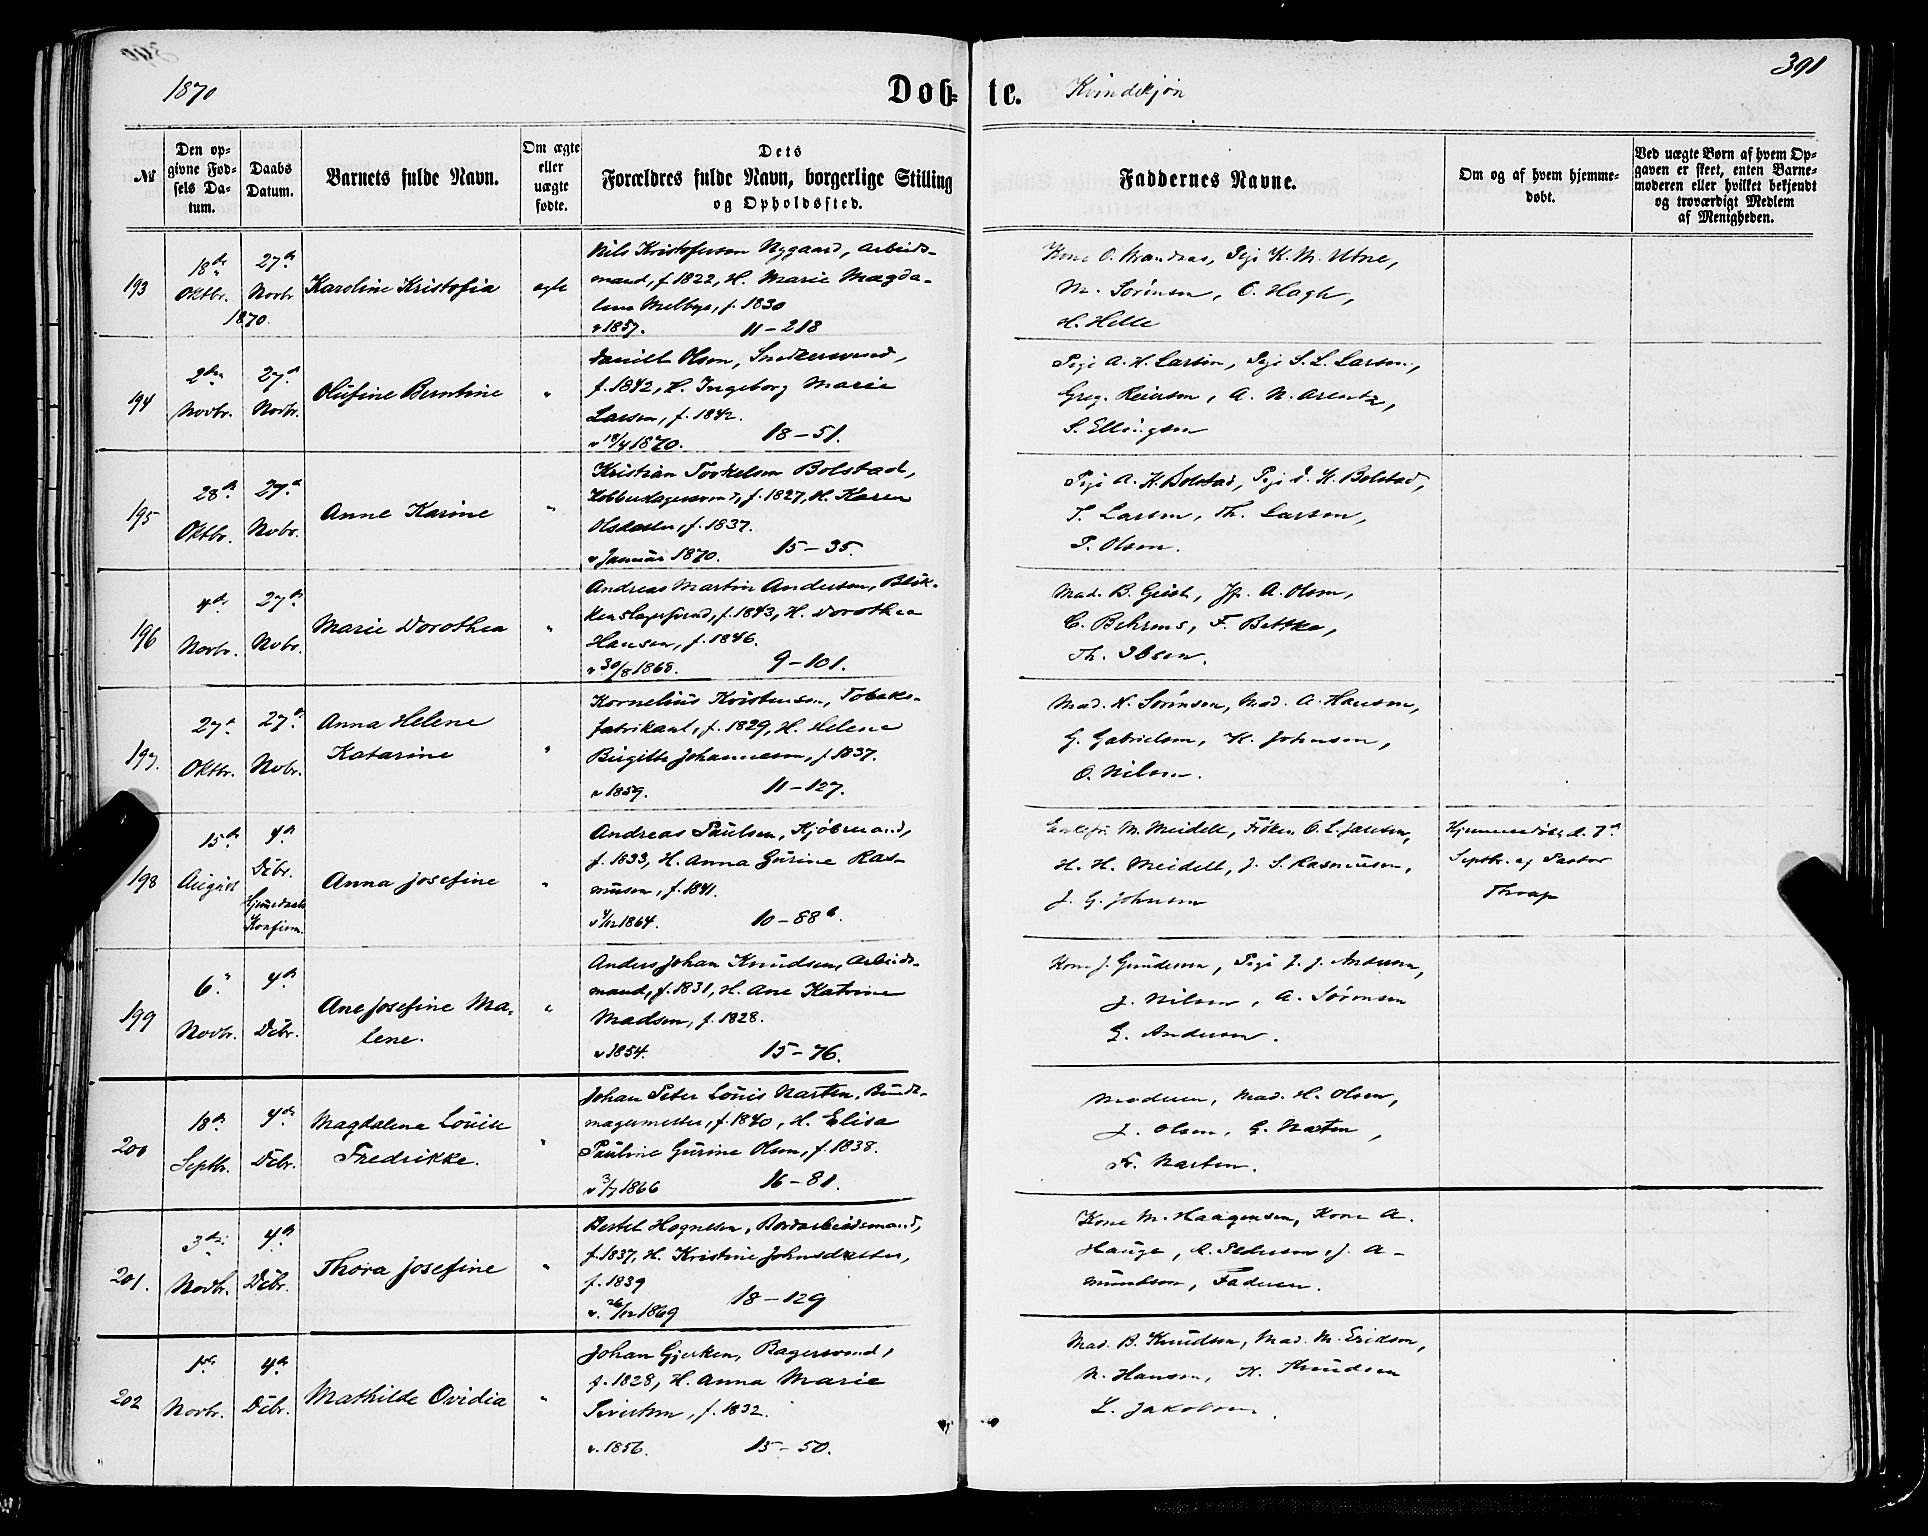 390
391
1870
Döb=
te. Kvindekjøn
№
Den op-
givne Fød-
sels Da-
tum.
Daabs
Datum.
Barnets fulde Navn.
Om ægte
eller
uægte
fødte.
Dets
Forældres fulde Navn, borgerlige Stilling
og Opholdssted.
Faddernes Navne.
Om og af hvem hjemme-
døbt.
Ved uægte Børn af hvem Op-
gaven er skeet, enten Barne-
moderen eller hvilket bekjendt
og troværdigt Medlem
af Menigheden.
193
18de
Oktbr.
27de
Novbr
1870.
Karoline Kristofia
ægte
Nils Kristofersen Nygaard, Arbeids-
mand, f. 1822, H. Marie Magda-
lena Melbye, f. 1830
v 1857. 11-218
Kone O. Brandaas, Pige K. M. Utne,
M. Sörensen, O. Hagh,
H. Helle
194
2den
Novbr.
27de
Novbr.
Olufine Berntine
"
Daniel Olsen, Snedkersvend,
f. 1842, H. Ingeborg Marie
Larsen, f. 1842.
v 18/4 1870. 18-51.
Pige A. H. Larsen, Pige S. L. Larsen,
Greg. Reiersen, A. N. Arentz,
S. Ellingsen
195
28de
Oktbr.
27de
Nobr.
Anne Karine
"
Kristian Torkelsen Bolstad,
Kobberslagersvend, f. 1827, H. Karen
Olsdatter, f. 1837.
v Januar 1870. 15-35.
Pige A. K. Bolstad, Pige I. K. Bolstad,
T. Larsen, Th. Larsen,
P. Olsen.
196
4de
Novbr.
27de
Nobr.
Marie Dorothea
"
Andreas Martin Andersen, Blik-
kenslagersvend, f. 1843, H. Dorothea
Hansen, f. 1846.
v 30/8 1868. 9-101.
Mad. B. Geist, Jfr. A. Olsen,
C. Behrens, F. Bettke,
Th. Ibsen.
197.
27de
Oktbr.
27de
Nobr.
Anna Helene
Katarine
"
Kornelius Kristensen, Tobaks-
fabrikant, f. 1829, H. Helene
Birgitte Johannesen, f. 1837.
v 1859. 11-127.
Mad. K. Sörensen, Mad. A. Hansen,
G. Gabrielsen, K. Johnsen,
O. Nilsen.
198
15de
August
4de
Debr.
Hjemedaab
Konfirm.
Anna Josefine
"
Andreas Paulsen, Kjöbmand,
f. 1833, H. Anna Gurine Ras-
mussen, f. 1841.
v 4/12 1864. 10-88b.
Enkefru M. Meidell, Fröken O. L. Jansen,
H. H. Meidell, J. S. Rasmussen,
J. G. Johnsen
Hjemmedöbt d. 7de
Septbr. af Pastor
Thrap
199
6te
Novbr.
4de
Debr.
Ane Josefine Ma-
lene.
"
Anders Johan Knudsen, Arbeids-
mand, f. 1831, H. Ane Katrine
Madsen, f. 1828.
v 1854. 15-76.
Kone J. Gundersen, Pige J. J. Andersen,
J. Nilsen, A. Sörensen
G. Andersen.
200
18de
Septbr.
4de
Debr.
Magdalena Louise
Fredrikke.
"
Johan Peter Louis Narten, Bundt-
magermester, f. 1840, H. Elisa
Pauline Gurine Olsen, f. 1838.
v 3/7 1866 16-81.
Moderen, Mad. H. Olsen,
J. Olsen, G. Narten,
Fr. Narten.
201.
3die
Novbr.
4de
Debr.
Thora Josefine
"
Bertel Hognesen, Bordarbeidsmand,
f. 1837, H. Kristine Johnsdatter,
f. 1839
v. 26/12 1869 18-129
Kone M. Haagensen, Kone A.
Hauge, R. Pedersen, J. A-
mundsen, Faderen.
202
1ste
Novbr.
4de
Debr.
Mathilde Ovidia
"
Johan Gjerken, Bagersvend,
f. 1828, H. Anna Marie
Sivertsen, f. 1832.
v. 1856. 15-50.
Mad. B. Knudsen, Mad. M. Eriksen,
N. Hansen, K. Knudsen
L. Jakobsen.